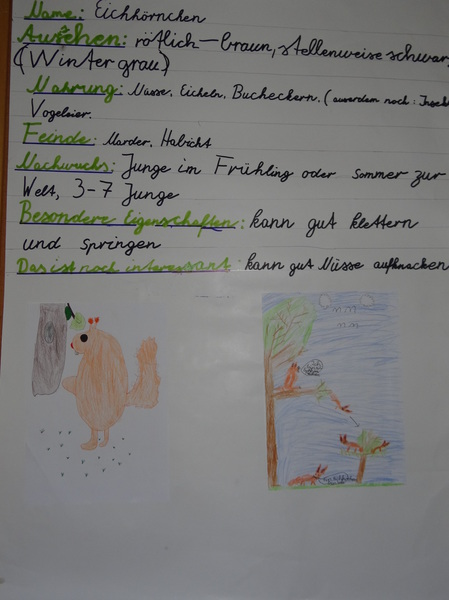 Name: Eichhörnchen
Aussehen: rötlich-braun, stellenweise schwar
(Winter grau)
Nahrung: Nüsse, Eicheln, Bucheckern, (ausserdem noch: Insek
Vogeleier.
Feinde: Marder, Habicht
Nachwuchs: Junge im Frühling oder Sommer zur
Welt, 3-7 Junge
Besondere Eigenschaften: kann gut klettern
und springen
Das ist noch interessant: kann gut Nüsse aufknacken